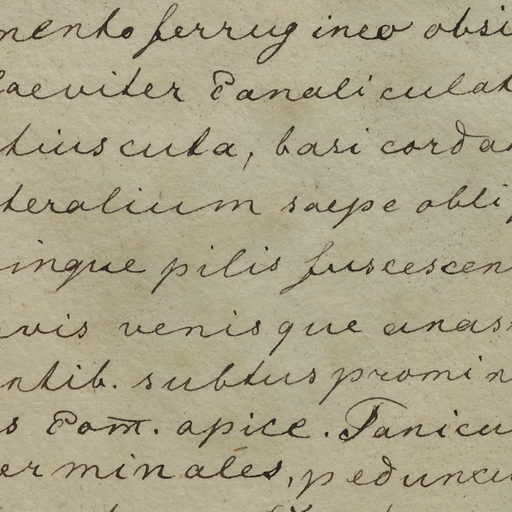 mento ferrugineo obsi
laeviter canaliculat
tiuscula, basi cordat
teralium saepe obli
inque pilis fuscescen
vis venisque anas
ntib. subtus promin
s com̅. apice. Panicu
erminales, peduncu